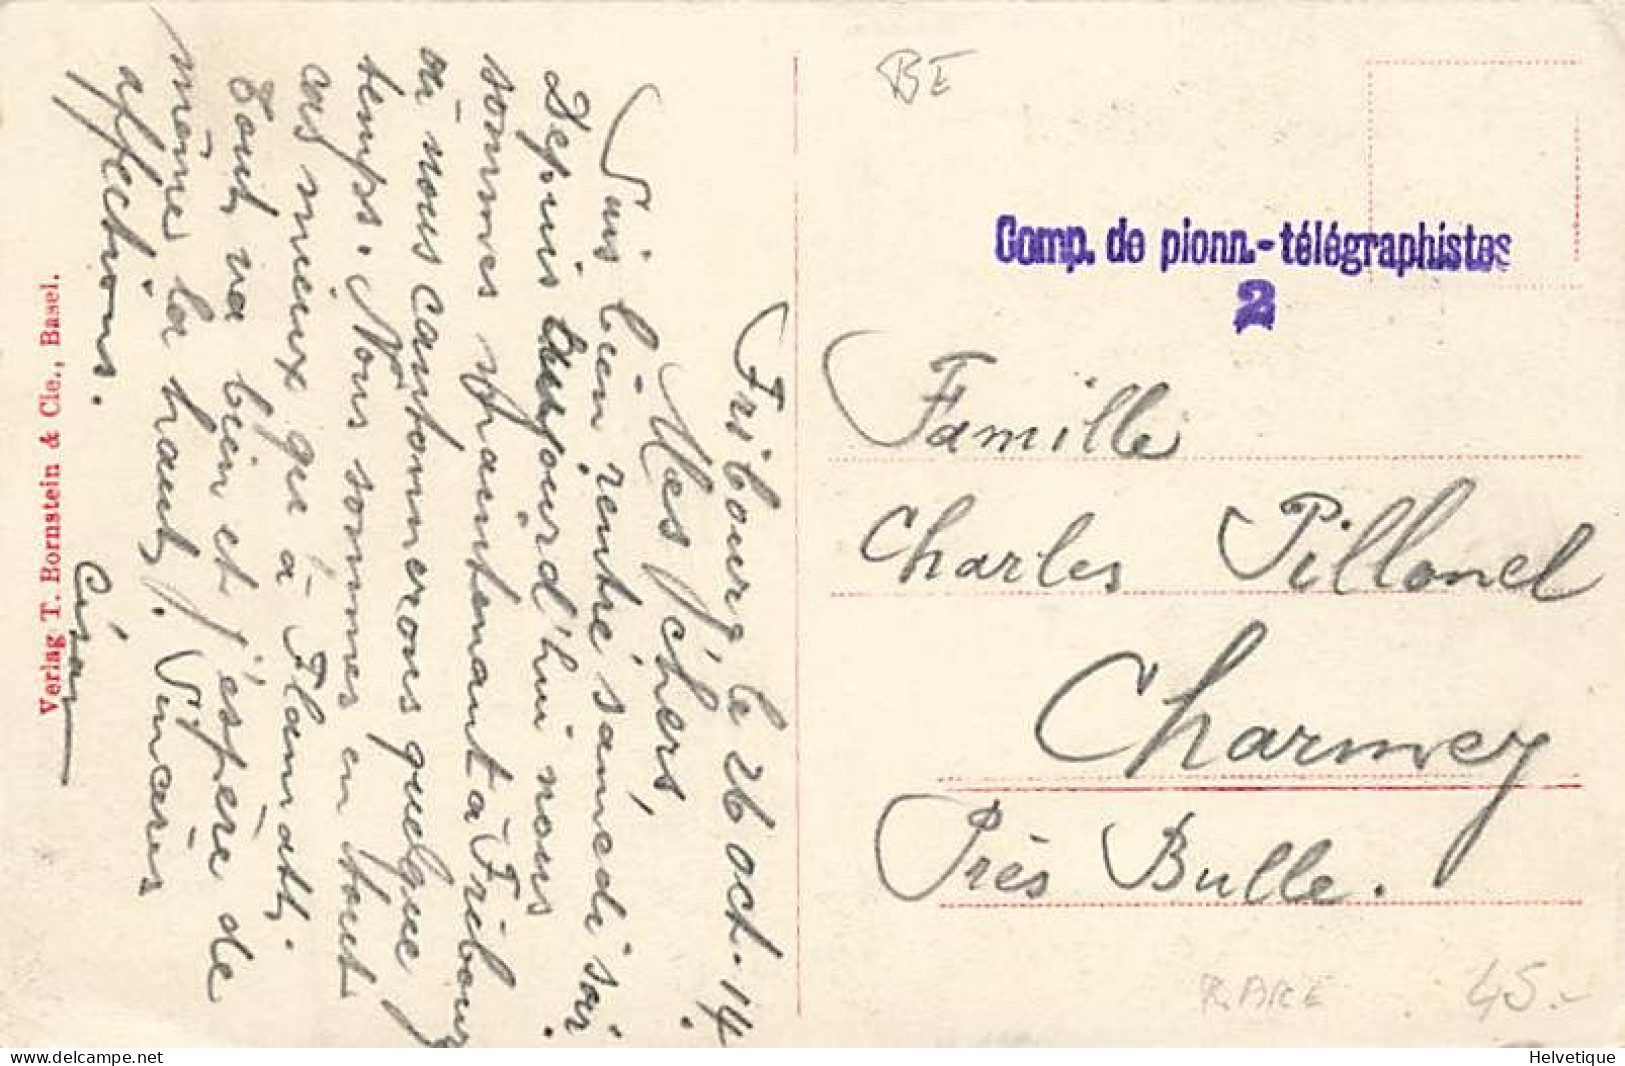 Fribourg, le 26 oct. 14.
Mes chers,
Suis bien rentré samedi soir.
Depuis aujourd'hui nous
sommes maintenant à Fribourg
où nous cantonnerons quelque
temps. Nous sommes en tout
cas mieux qu'à Flamatt.
Tout va bien et j'espère de
même là haut. Sincères
affections.
César
Verlag T. Bornstein & Cie., Basel.
BE
Comp. de pionn.-télégraphistes
2
Famille
Charles Pillonel
Charmey
Près Bulle.
RARE 45.-
delcampe.net
Helvetique